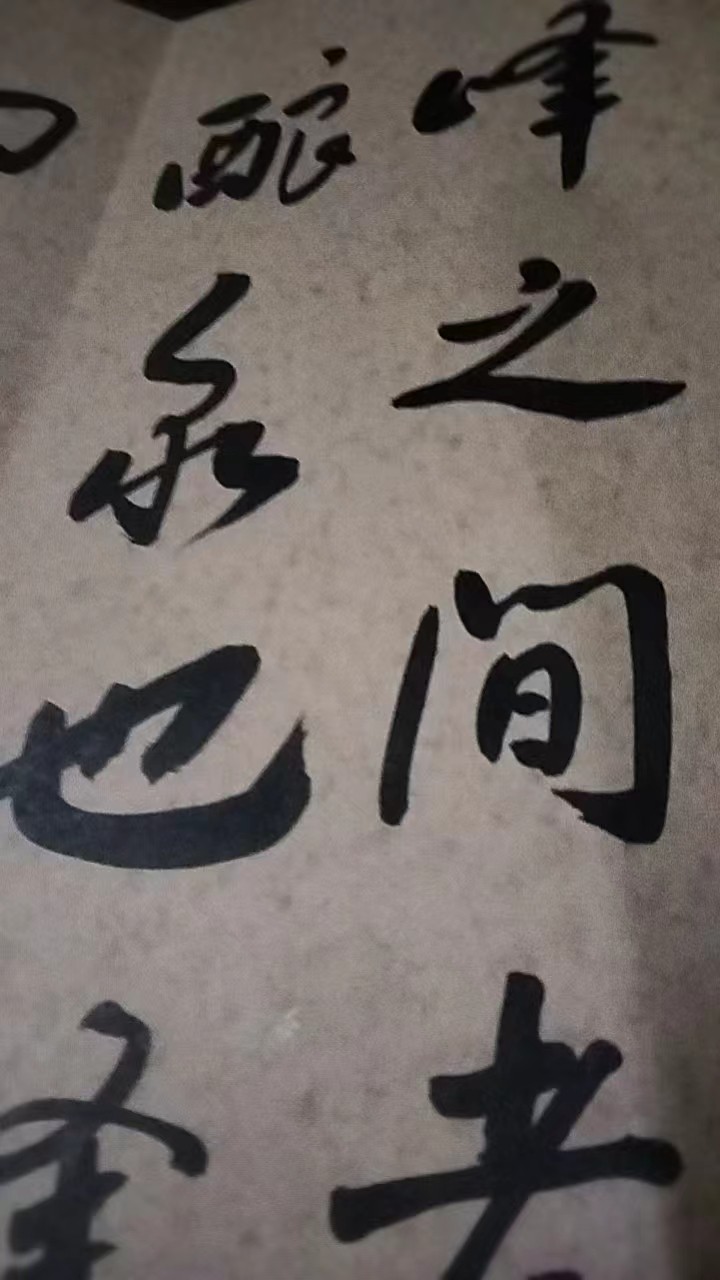 峰之间者
酿泉也峰